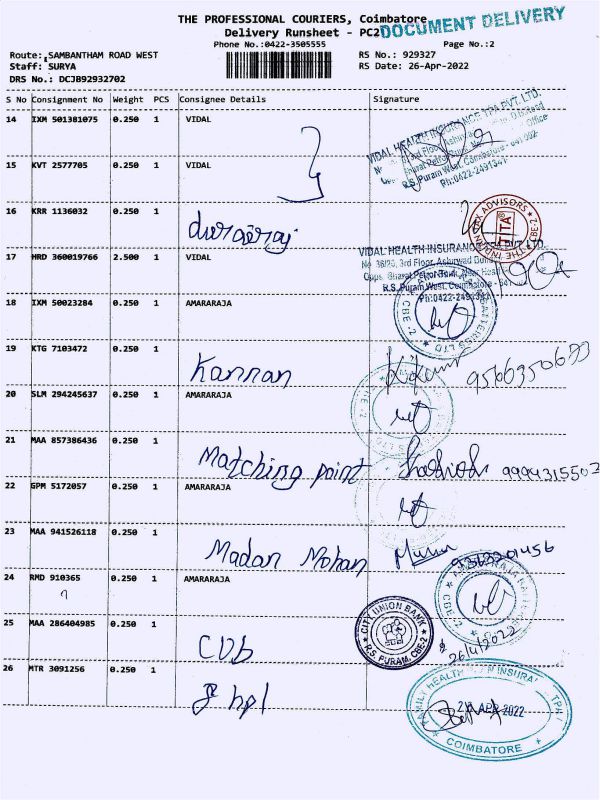 THE PROFESSIONAL COURIERS, Coimbatore
DOCUMENT DELIVERY
Delivery Runsheet - PC2
Phone No.:0422-3505555
Page No.:2
Route: SAMBANTHAM ROAD WEST
RS No.: 929327
Staff: SURYA
RS Date: 26-Apr-2022
DRS No.: DCJB92932702
S No Consignment No Weight PCS Consignee Details Signature
14 IXM 501381075 0.250 1 VIDAL
VIDAL HEALTH INSURANCE TPA PVT. LTD.
15 KVT 2577705 0.250 1 VIDAL
R.S. Puram West, Coimbatore - 641 002
Ph:0422-2491341
16 KRR 1136032 0.250 1
durairaj
17 HRD 360019766 2.500 1 VIDAL
VIDAL HEALTH INSURANCE TPA PVT. LTD.
R.S. Puram West, Coimbatore - 641
18 IXM 50023284 0.250 1 AMARARAJA
CBE-2
19 KTG 7103472 0.250 1
Kannan
20 SLM 294245637 0.250 1 AMARARAJA
21 MAA 857386436 0.250 1
Matching point
9994315502
22 GPM 5172057 0.250 1 AMARARAJA
23 MAA 941526118 0.250 1
Madan Mohan
24 RMD 910365 0.250 1 AMARARAJA
CBE-2
25 MAA 286404985 0.250 1
CUB
CITY UNION BANK
R.S. PURAM, CBE-2
26/4/2022
26 MTR 3091256 0.250 1
fhpl
FAMILY HEALTH PLAN INSURANCE TPA
APR 2022
COIMBATORE